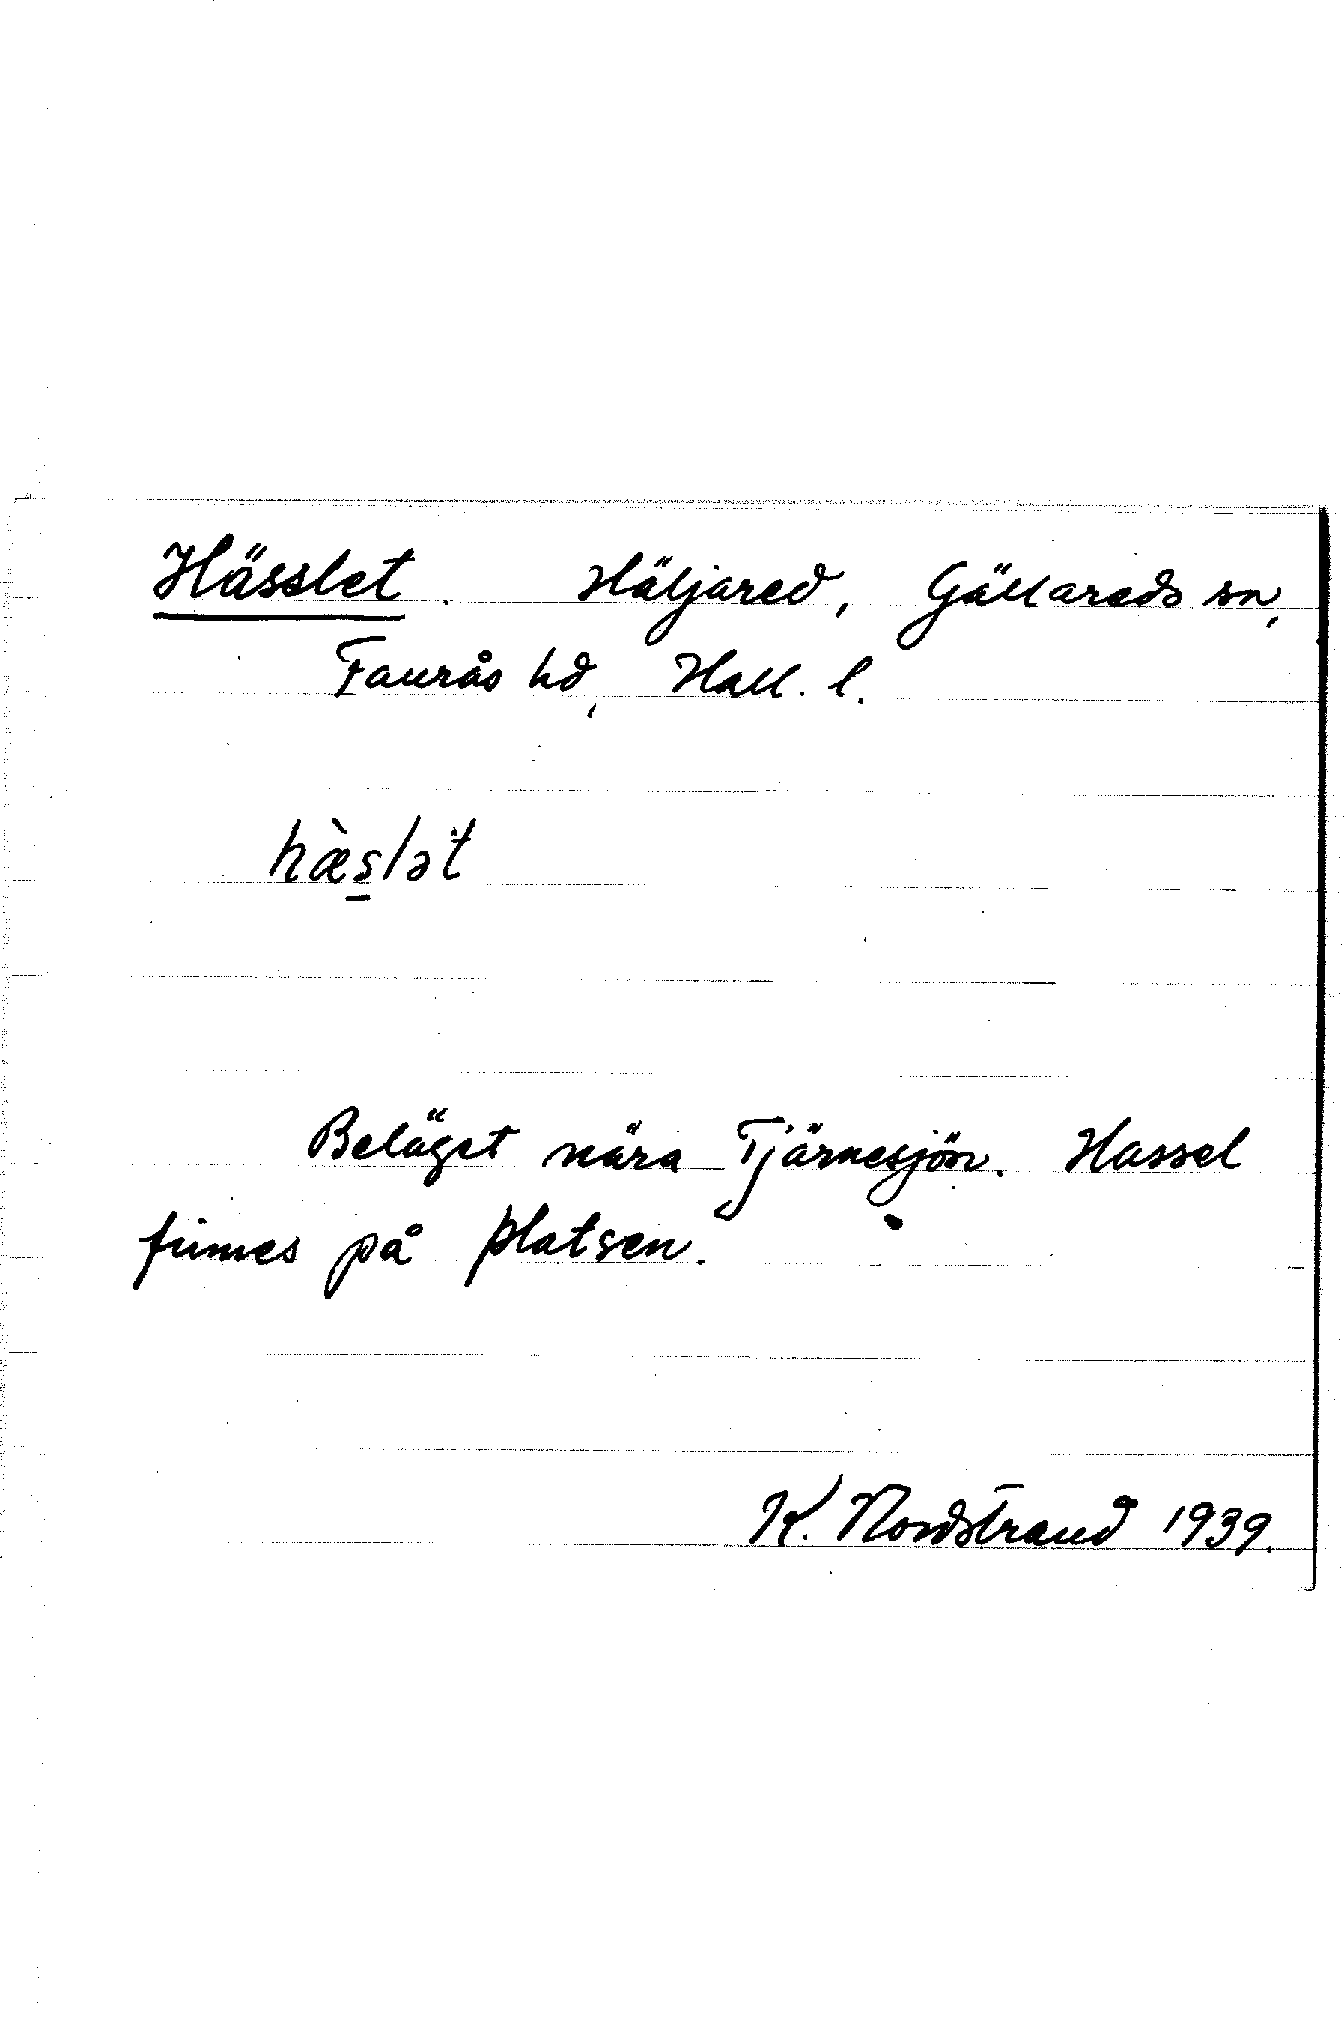 Hässlet. Häljared, Gällareds sn,
Faurås hd, Hall. l.
hæ̀s̠lət
Beläget nära Tjärnesjön. Hassel
finnes på platsen.
K. Nordstrand 1939.